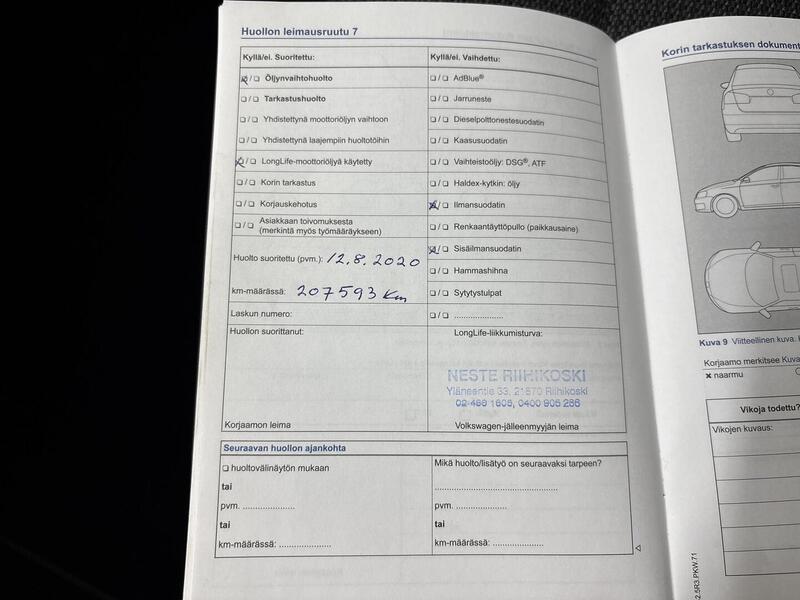 Huollon leimausruutu 7
Kyllä/ei. Suoritettu:
☒/☐ Öljynvaihtohuolto
☐/☐ Tarkastushuolto
☐/☐ Yhdistettynä moottoriöljyn vaihtoon
☐/☐ Yhdistettynä laajempiin huoltotöihin
☒/☐ LongLife-moottoriöljyä käytetty
☐/☐ Korin tarkastus
☐/☐ Korjauskehotus
☐/☐ Asiakkaan toivomuksesta
(merkintä myös työmääräykseen)
Huolto suoritettu (pvm.): 12.8.2020
km-määrässä: 207593 Km
Laskun numero:
Huollon suorittanut:
Korjaamon leima
Kyllä/ei. Vaihdettu:
☐/☐ AdBlue®
☐/☐ Jarruneste
☐/☐ Dieselpolttonestesuodatin
☐/☐ Kaasusuodatin
☐/☐ Vaihteistoöljy: DSG®, ATF
☐/☐ Haldex-kytkin: öljy
☒/☐ Ilmansuodatin
☐/☐ Renkaantäyttöpullo (paikkausaine)
☒/☐ Sisäilmansuodatin
☐/☐ Hammashihna
☐/☐ Sytytystulpat
☐/☐ .....................
LongLife-liikkumisturva:
NESTE RIIHIKOSKI
Yläneentie 33, 21870 Riihikoski
02-486 1605, 0400 905 286
Volkswagen-jälleenmyyjän leima
Seuraavan huollon ajankohta
☐ huoltovälinäytön mukaan
tai
pvm. ......................
tai
km-määrässä: ......................
Mikä huolto/lisätyö on seuraavaksi tarpeen?
.....................................................
pvm. ......................
tai
km-määrässä: ......................
Korin tarkastuksen dokument
Kuva 9 Viitteellinen kuva.
Korjaamo merkitsee Kuva
✖ naarmu
Vikoja todettu?
Vikojen kuvaus:
2.5R3.PKW.71